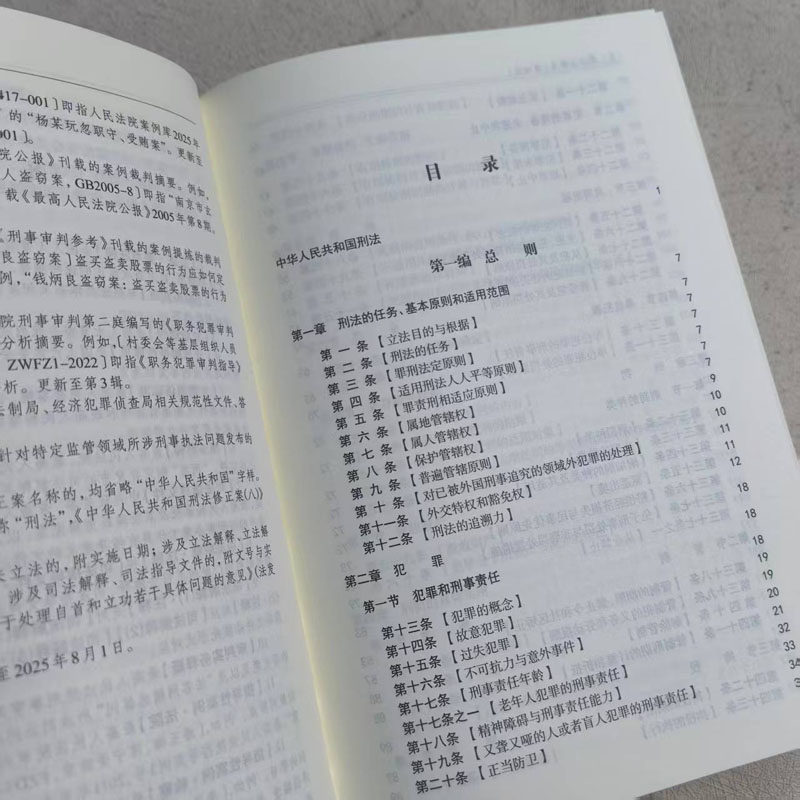 417-001]即指人民法院案例库2025年
的“杨某玩忽职守、受贿案”。更新至
001]。
院公报》刊载的案例裁判摘要。例如,
人盗窃案,GB2005-8]即指“南京市玄
载《最高人民法院公报》2005年第8期。
《刑事审判参考》刊载的案例提炼的裁判
良盗窃案]盗买盗卖股票的行为应如何定
例,“钱炳良盗窃案:盗买盗卖股票的行为
院刑事审判第二庭编写的《职务犯罪审判
分析摘要。例如,[村委会等基层组织人员
ZWFZ1-2022]即指《职务犯罪审判指导》
析。更新至第3辑。
法制局、经济犯罪侦查局相关规范性文件、答
针对特定监管领域所涉刑事执法问题发布的
正案名称的,均省略“中华人民共和国”字样。
称“刑法”,《中华人民共和国刑法修正案(八)》
立法的,附实施日期;涉及立法解释、立法解
涉及司法解释、司法指导文件的,附文号与实
于处理自首和立功若干具体问题的意见》(法发
至2025年8月1日。
目 录
中华人民共和国刑法 1
第一编 总 则
第一章 刑法的任务、基本原则和适用范围 7
第一条【立法目的与根据】 7
第二条【刑法的任务】 7
第三条【罪刑法定原则】 7
第四条【适用刑法人人平等原则】 7
第五条【罪责刑相适应原则】 7
第六条【属地管辖权】 9
第七条【属人管辖权】 10
第八条【保护管辖权】 10
第九条【普遍管辖原则】 11
第十条【对已被外国刑事追究的领域外犯罪的处理】 11
第十一条【外交特权和豁免权】 12
第十二条【刑法的追溯力】
第二章 犯 罪 18
第一节 犯罪和刑事责任 18
第十三条【犯罪的概念】 18
第十四条【故意犯罪】 19
第十五条【过失犯罪】 19
第十六条【不可抗力与意外事件】 20
第十七条【刑事责任年龄】 21
第十七条之一【老年人犯罪的刑事责任】 32
第十八条【精神障碍与刑事责任能力】 33
第十九条【又聋又哑的人或者盲人犯罪的刑事责任】
第二十条【正当防卫】